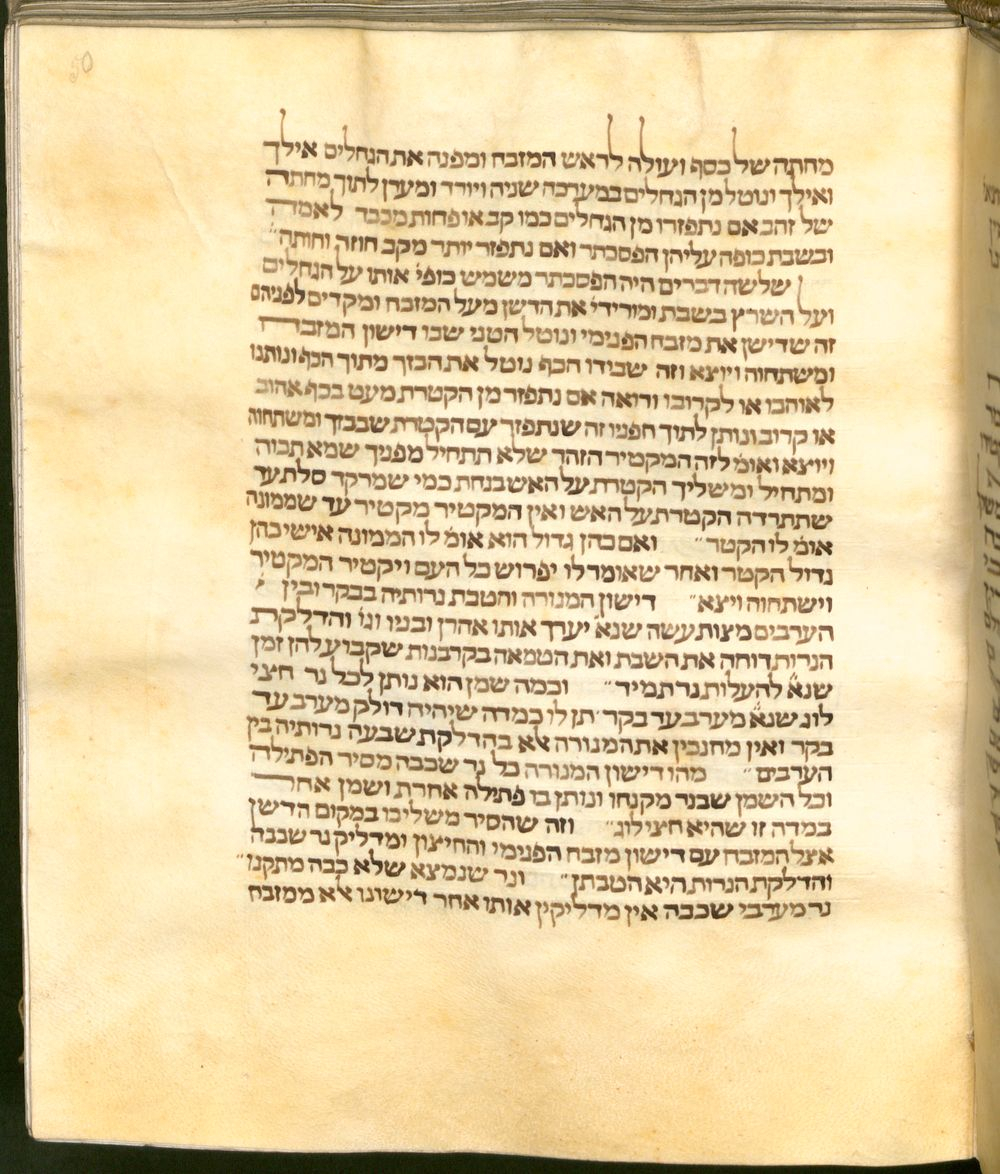 50
מחתה של כסף ועולה לראש המזבח ומפנה את הגחלים אילך
ואילך ונוטל מן הגחלים במערכה שניה ויורד ומערן לתוך מחתה
של זהב אם נתפזרו מן הגחלים כמו קב או פחות מכבד לאמה
ובשבת כופה עליהן הפסכתר ואם נתפזר יותר מקב חוזה וחותה״
שלשה דברים היה הפסכתר משמש כופי׳ אותו על הגחלים
ועל השרץ בשבת ומורידי׳ את הדשן מעל המזבח ומקדים לפניהם
זה שדישן את מזבח הפנימי ונוטל הטני שבו דישון המזבח
ומשתחוה ויוצא וזה שבידו הכף נוטל את הבזך מתוך הכף ונותנו
לאוהבו או לקרובו ורואה אם נתפזר מן הקטרת מעט בכף אהוב
או קרוב ונותן לתוך חפניו זה שנתפזר עם הקטרת שבבזך ומשתחוה
ויוצא ואומ׳ לזה המקטיר הזהר שלא תתחיל מפניך שמא תכוה
ומתחיל ומשליך הקטרת על האש בנחת כמי שמרקד סלת עד
שתתרדה הקטרת על האש ואין המקטיר מקטיר עד שממונה
אומ׳ לו הקטר״ ואם כהן גדול הוא אומ׳ לו הממונה אישי כהן
גדול הקטר ואחר שאומר לו יפרוש כל העם ויקטיר המקטיר
וישתחוה ויצא״ דישון המנורה והטבת נרותיה בבקר ובין
הערבים מצות עשה שנא׳ יערך אותו אהרן ובניו וגו׳ והדלקת
הנרות דוחה את השבת ואת הטמאה בקרבנות שקבוע להן זמן
שנא׳ להעלות נר תמיד״ וכמה שמן הוא נותן לכל נר חצי
לוג שנא׳ מערב עד בקר תן לו כמדה שיהיה דולק מערב עד
בקר ואין מחנכין את המנורה אלא בהדלקת שבעה נרותיה בין
הערבים״ מהו דישון המנורה כל נר שכבה מסיר הפתילה
וכל השמן שבנר מקנחו ונותן בו פתילה אחרת ושמן אחר
במדה זו שהיא חצי לוג״ וזה שהסיר משליכו במקום הדשן
אצל המזבח עם דישון מזבח הפנימי והחיצון ומדליק נר שכבה
והדלקת הנרות היא הטבתן״ ונר שנמצא שלא כבה מתקנו״
נר מערבי שכבה אין מדליקין אותו אחר דישונו אלא ממזבח